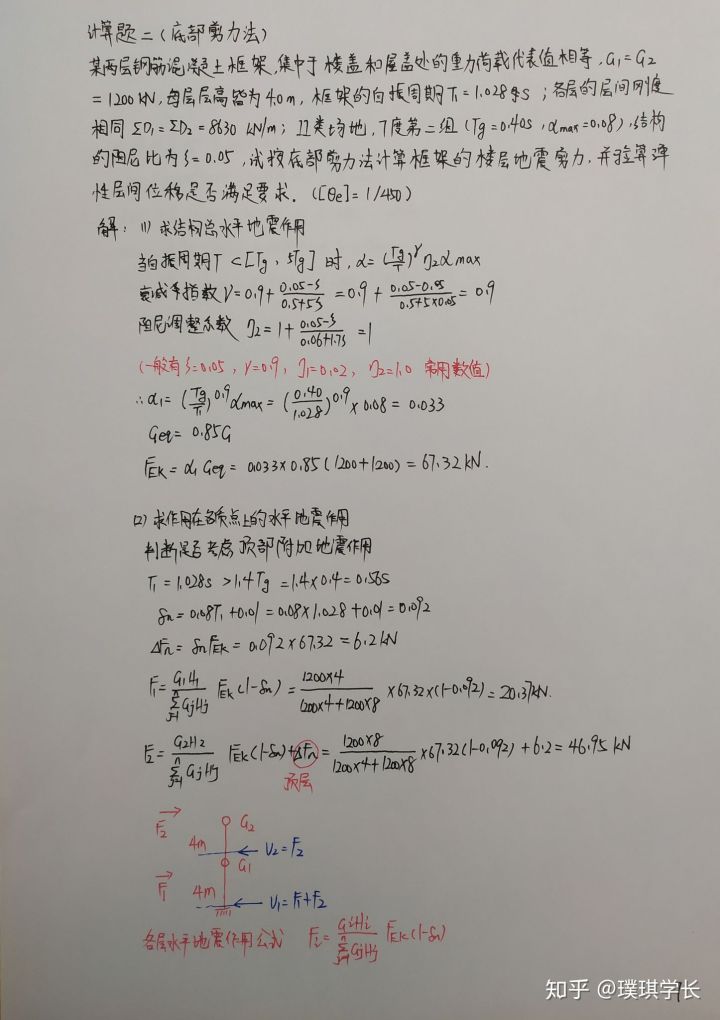 计算题二(底部剪力法)
某两层钢筋混凝土框架,集中于楼盖和屋盖处的重力荷载代表值相等,G₁=G₂
=1200kN,每层层高皆为4.0m,框架的自振周期T₁=1.028s;各层的层间刚度
相同ΣD₁=ΣD₂=8630 kN/m;Ⅱ类场地,7度第二组(Tg=0.40s,αmax=0.08),结构
的阻尼比为ζ=0.05,试按底部剪力法计算框架的楼层地震剪力,并验算弹
性层间位移是否满足要求.([θe]=1/450)
解:(1)求结构总水平地震作用
当自振周期T⊂[Tg,5Tg]时,α=(Tg/T)^γ η₂αmax
衰减系指数γ=0.9+(0.05-ζ)/(0.5+5ζ)=0.9+(0.05-0.05)/(0.5+5×0.05)=0.9
阻尼调整系数 η₂=1+(0.05-ζ)/(0.06+1.7ζ)=1
(一般有ζ=0.05,γ=0.9,η₁=0.02,η₂=1.0 常用数值)
∴α₁=(Tg/T₁)^0.9 αmax=(0.40/1.028)^0.9×0.08=0.033
Geq=0.85G
FEK=α₁Geq=0.033×0.85(1200+1200)=67.32kN.
(2)求作用在各质点上的水平地震作用
判断是否考虑顶部附加地震作用
T₁=1.028s>1.4Tg=1.4×0.4=0.56s
δn=0.08T₁+0.01=0.08×1.028+0.01=0.092
ΔFn=δnFEK=0.092×67.32=6.2kN
F₁=G₁H₁/(Σ(j=1,n)GjHj) FEK(1-δn)=1200×4/(1200×4+1200×8)×67.32×(1-0.092)=20.37kN.
F₂=G₂H₂/(Σ(j=1,n)GjHj) FEK(1-δn)+ΔFn=1200×8/(1200×4+1200×8)×67.32(1-0.092)+6.2=46.95 kN
顶层
F₂ G₂
4m V₂=F₂
G₁
F₁ 4m V₁=F₁+F₂
各层水平地震作用公式 Fi=GiHi/(Σ(j=1,n)GjHj) FEK(1-δn)
知乎 @璞琪学长